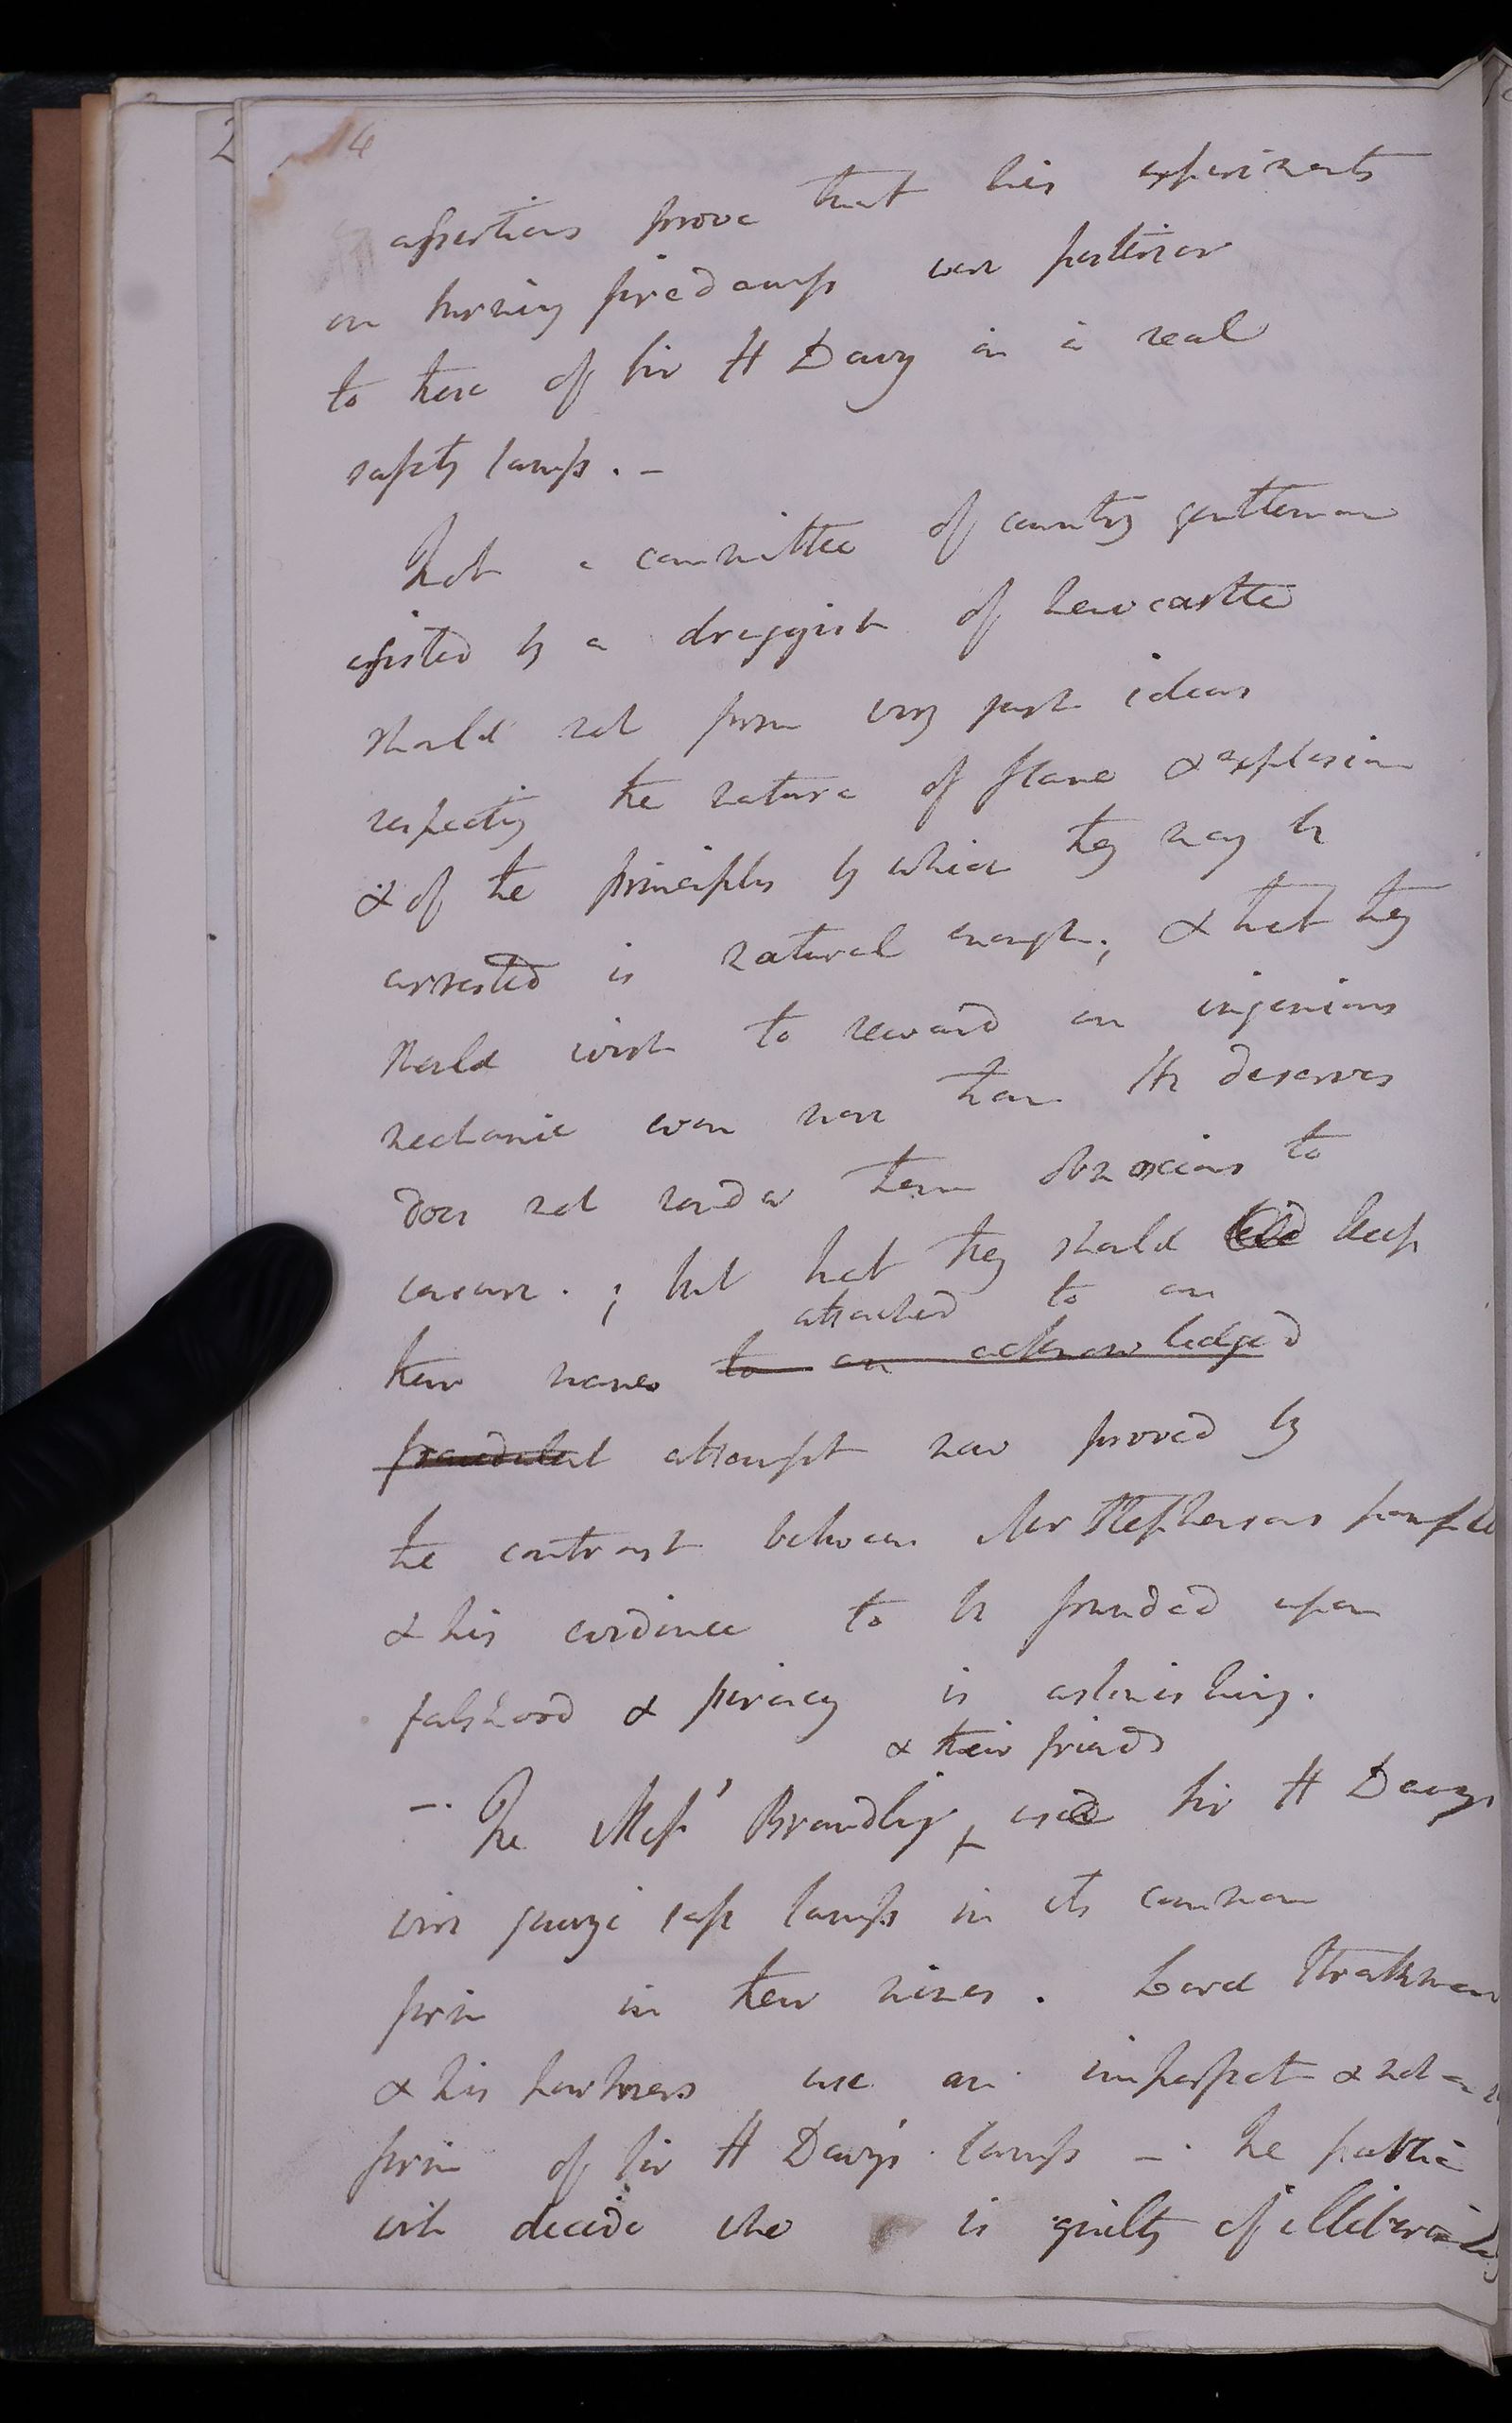 4
2
assertions prove that his experiments
on burning firedamp were posterior
to those of Sir H Davy in a real
safety lamp. –
That a committee of country gentlemen
assisted by a druggist of Newcastle
should not form very just ideas
respecting the nature of flame & explosion
& of the principles by which they may be
arrested is natural enough; & that they
should wish to reward an ingenious
mechanic even more than He deserves
does not render them obnoxious to
censure. ; but that they should keep
attached to an
their names to an acknowledged
fraudulent attempt now proved by
the contrast between Mr Stephensons
& his evidence to be founded upon
falshood & piracy is astonishing.
& their friends
–. The Messrs Brandling, used Sir H Davys
wire gauze safe lamp in its common
form in their mines. Lord
& his partners use an imperfect & not
form of Sir H Davy's lamp – . The public
will decide who is guilty of